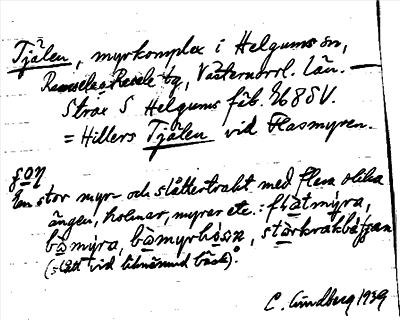 Tjälen, myrkomplex i Helgums sn,
Ramsele o Resele tg, Västernorrl. län. —
Strax S Helgums fäb. 368 SV.
= Hillers Tjälen vid Flasmyren.
En stor myr- och slåttertrakt med flera olika
ängen, holmar, myrar etc.: flatmýra,
bàmýra, bàmyrhòsn,
(slått vid tillnämnd bäck).
C. Lindberg 1939